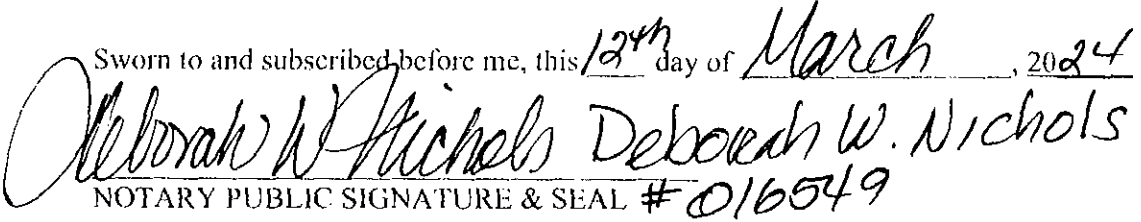 Sworn to and subscribed before me, this 12th day of March, 2024
Deborah W Nichols Deborah W. Nichols
NOTARY PUBLIC SIGNATURE & SEAL # 016549